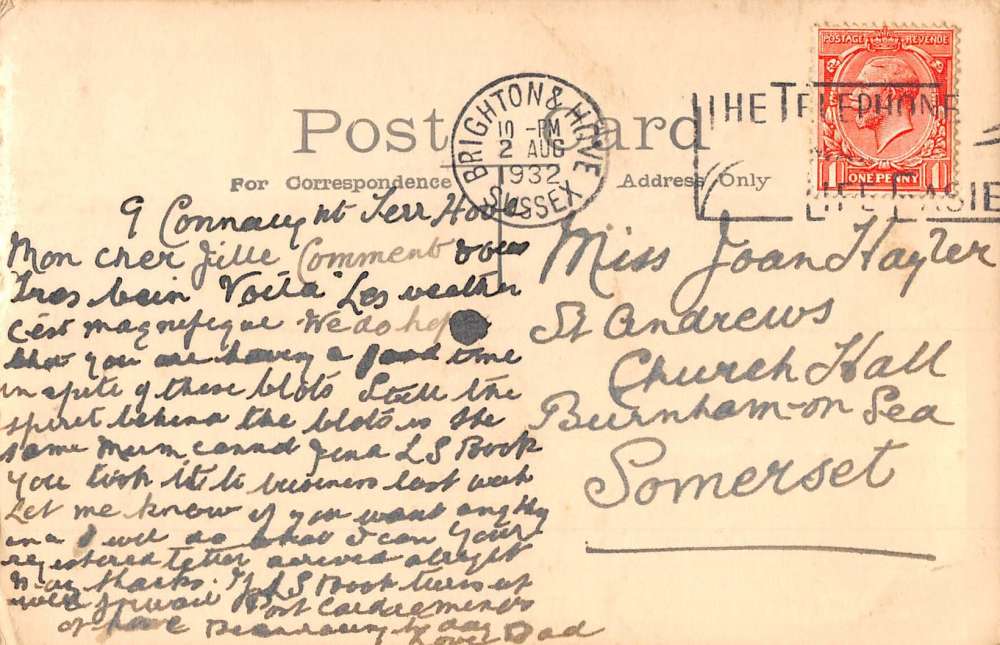 Post Card
For Correspondence
Address Only
BRIGHTON & HOVE
10 - PM
2 AUG
1932
SUSSEX
THE TELEPHONE
LIFE EASIE
POSTAGE REVENUE
1 ONE PENNY 1
9 Connaught Terr Hove
Mon cher fille Comment vous
Tres bein Voila Les weather
c'est magnifique We do hope
that you are having a good time
in spite of these blots Still the
spirit behind the blots is the
same Mum cannot find L S Book
You took it to business last week
Let me know if you want anything
and I will do what I can Your
registered letter arrived alright
thanks. If L S Book turns up
will forward Post Card
of Dad
Miss Joan Hayler
St Andrews
Church Hall
Burnham-on Sea
Somerset